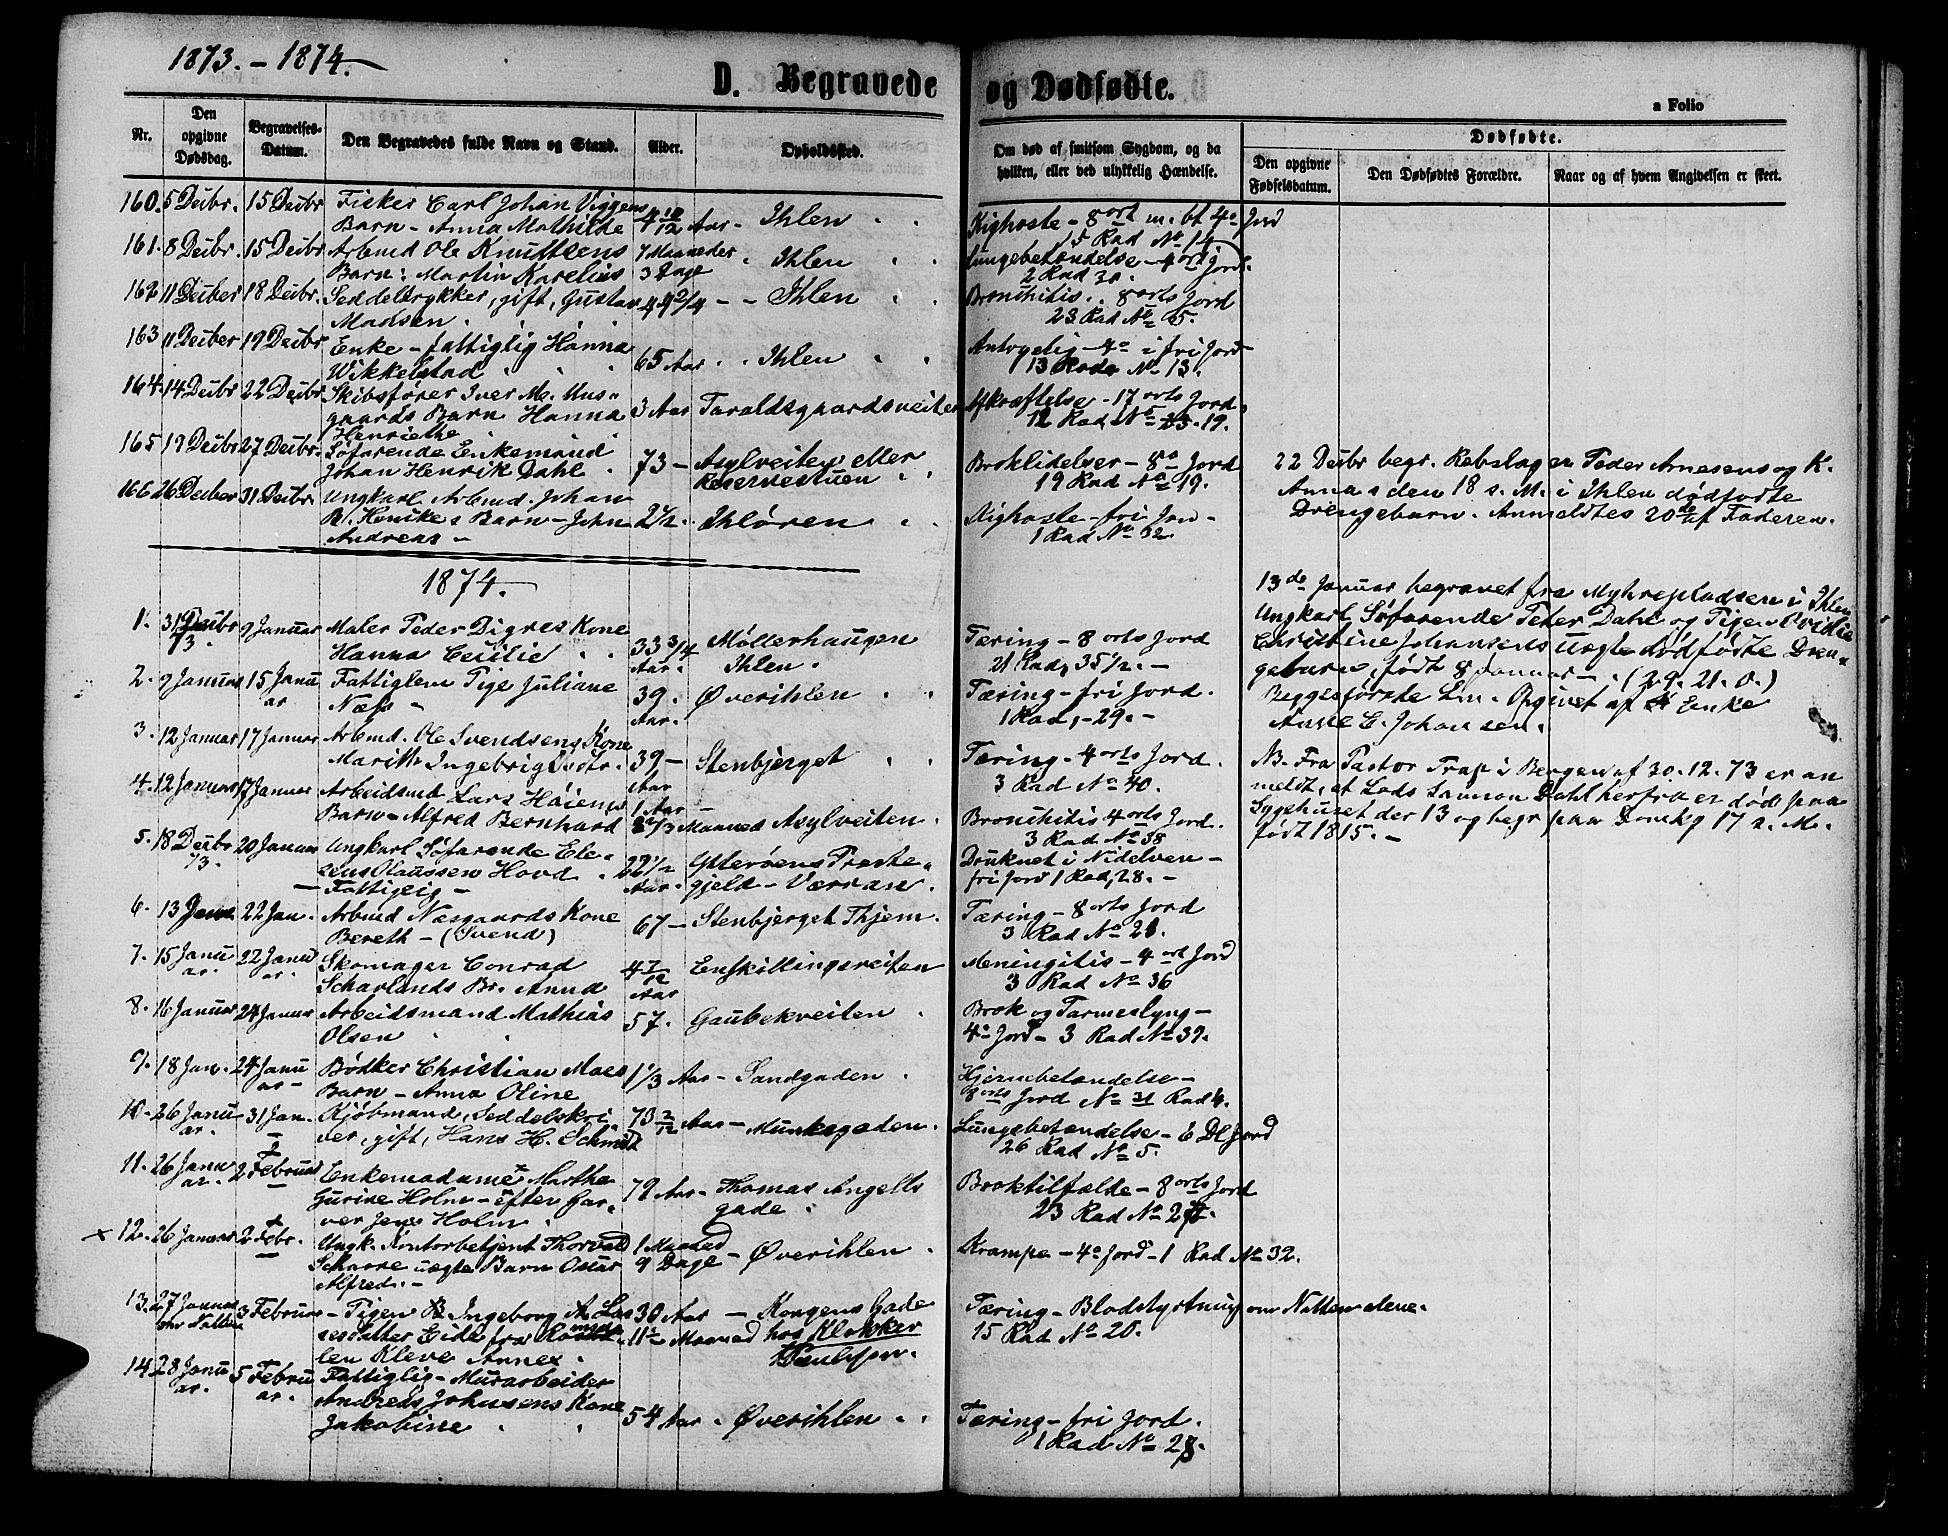 1873. - 1874.
D. Begravede og Dødfødte.
a Folio
Nr.
Den opgivne Dødsdag.
Begravelses-Datum.
Den Begravedes fulde Navn og Stand.
Alder.
Opholdssted.
Om død af smitsom Sygdom, og da hvilken, eller ved ulykkelig Hændelse.
Dødfødte.
Den opgivne Fødselsdatum.
Den Dødfødtes Forældre.
Naar og af hvem Angivelsen er skeet.
160. 5 Deibr. 15 Deibr Fisker Carl Johan Viggens
Barn - Anna Mathilde 4 10/12 Aar - Ihlen
Kighoste - 8 ort m. bt 4de Jord
15 Rad No 14
161. 8 Deibr. 15 Deibr Arbmd Ole Knudtsens 7 Maaneder
Barn: Martin Karelius 3 Dage Ihlen
Lungebetændelse - 4 ort Jord.
2 Rad 30.
162 11 Deiber 18 Deibr. Seddeltrykker, gift, Gustav 49 2/4 - - Ihlen
Madsen.
Bronchitis. 8 orts Jord
23 Rad No 5.
163 11 Deiber 19 Deibr Enke - fattiglig Hanna
Wikkelstad 65 Aar Ihlen
13 Rad No 13.
164. 14 Deibr 22 Deibr Skibsfører Iver M. Mus-
gaards Barn Hanna 3 Aar Taraldsgaardsveiten
Henriethe
Afkræftelse - 17 orts Jord.
12 Rad No 19.
165 19 Deibr 27 Deibr. Søfarende Enkemand
Johan Henrik Dahl 73 - Asylveiten eller
Reservestuen
Broklidelser - 8o Jord
19 Rad No 19.
166 26 Deiber 31 Deibr. Ungkarl Arbmd. Johan
B. Henikes Barn - John 2 1/2. Ihlören
Andreas -
Kighoste - fri Jord -
1 Rad No 32.
22 Deibr begr. Rebslager Peder Arnesens og K.
Annas den 18 s. M. i Ihlen dødfødte
Drengebarn. Anmeldtes 20de af Faderen.
1874.
1. 31 Deibr 73. 9 Januar Maler Peder Digres Kone
Hanna Cecilie 33 3/4 Aar. Møllerhaugen
Ihlen.
Tæring - 8 orts Jord
21 Rad, 35 1/2. -
2. 9 Januar 15 Januar Fattiglem Pige Juliane
Næss - 39. Aar. Øverihlen
Tæring - fri Jord.
1 Rad, - 29. -
3. 12 Januar 17 Januar Arbmd. Ole Svendsens Kone
Marith Ingebrigtsdtr. 39 - Aar Stenbjerget
Tæring - 4 orts Jord.
3 Rad No 40.
4. 12 Januar 17 Januar Arbeidsmd Lars Høiens
Barn - Alfred Bernhard 1 Aar Maaned Asylveiten.
Bronchitis 4 orts Jord.
3 Rad No 38
5. 18 Deibr 73. 20 Januar Ungkarl Søfarende Ele-
sens Olaussen Hovd 22 1/2 Aar. Ytterøens Præste-
- Fattiglig - gjeld - Værran.
Druknet i Nidelven -
fri Jord 1 Rad, 28. -
6. 13 Jan 22 Jan. Arbmd Næsgaards Kone
Bereth - (Svend) 67 - Stenbjerget Thjem.
Tæring - 8 orts Jord
3 Rad No 21.
7. 15 Januar. 22 Januar. Skomager Conrad
Scharlands Br. Anud 4 7/12 Aar Enskillingsveiten
Meningitis - 4 ort Jord
3 Rad No 36
8. 16 Januar 24 Januar Arbeidsmand Mathias
Olsen 57. Gaubekveiten
Brok og Tarmeslyng -
4o Jord - 3 Rad No 39.
9. 18 Jan. 24 Januar - Bødker Christian Moes
Barn - Anna Oline 1 1/3 Aar - Sandgaden
Hjernebetændelse -
8 orts Jord No 31 Rad 4.
10. 26 Januar. 31 Jan. Kjøbmand, Seddelskri-
ver, gift, Hans H. Schmidt 73 2/12 Aar - Munkegaden.
Lungebetændelse - E Dl Jord
26 Rad No 5.
11. 26 Januar. 2 Februar Enkemadame Martha
Gurine Holm - efter Gar-
ver Jens Holm. 79 Aar - Thomas Angells
gade.
Broktilfælde - 8 orts Jord
23 Rad No
x 12. 26 Januar 2 Febr. Ungk. Kontorbetjent Thorvald
Scharre uægte Barn Oscar
Alfred. - 1 Maaned 9 Dage - Øverihlen.
Krampe - 4o Jord - 1 Rad No 32.
13. 27 Januar om Natten 3 Februar - Pigen Ingeborg A. Las
sesdatter Eide fra Romsda
len Kleve Annex. 30 Aar 11 1/2 Maaned - Kongens Gade
hos Klokker
Poulsson.
Tæring - Blodstyrtning om Natten alene.
15 Rad No 20.
14 28 Januar. 5 Februar. Fattiglig - Murarbeider
Andreas Johnsens Kone
Jakobine 54 Aar. Øverihlen
Tæring - fri Jord.
1 Rad No 28.
13de Januar begravet fra Myhrepladsen i Ihlen
Ungkarl Søfarende Peter Dahl og Pigen Ovidia
Christine Johansens uægte dødfødte Dren-
gebarn, født 8 Januar - . (29. 21. 0.)
Begges første Lm. Opgivet af Enke
Anne E. Johansen.
NB. Fra Pastor Trap i Bergen af 30. 12. 73 er an
meldt, at Lods Samson Dahl herfra er død paa
Sygehuset der 13 og begr paa Domkg 17 s. M.
født 1815. -